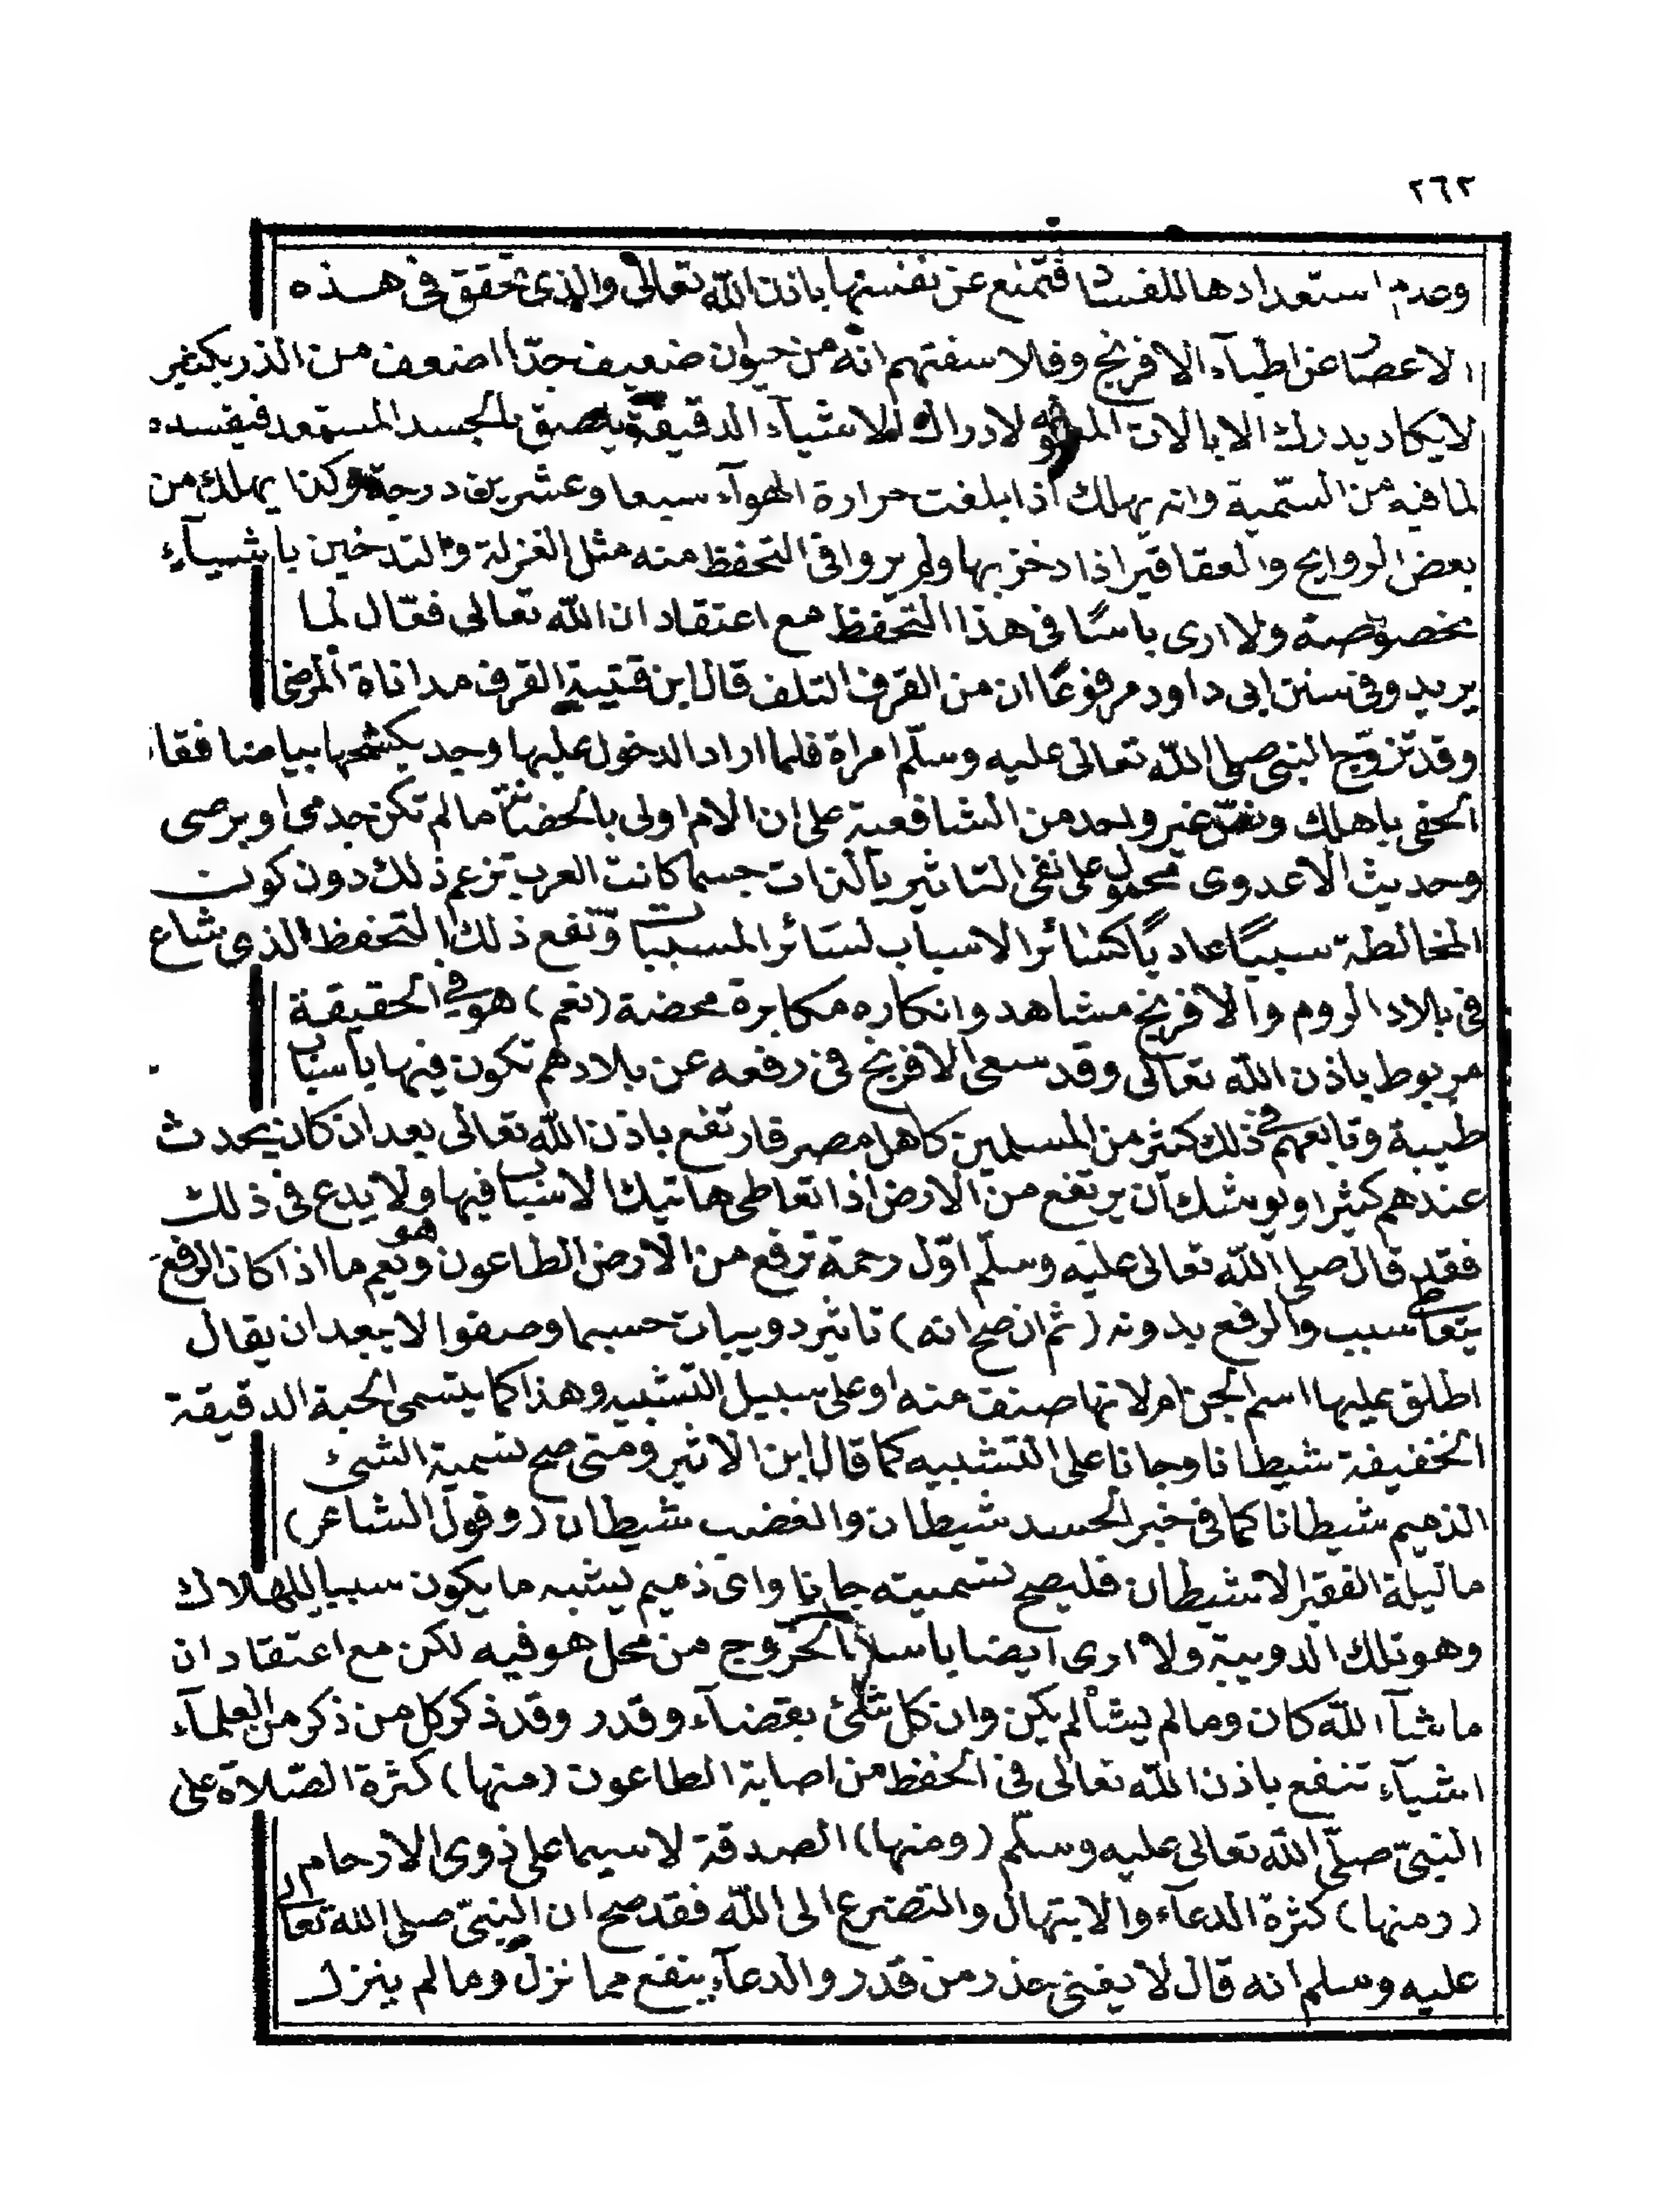 ٢٦٢
وعدم استعدادها للفساد فتمنع عن نفسها باذن الله تعالى والذى تحقق فى هذه
الاعصار عن اطبآء الافرنج وفلاسفتهم انه من حيوان ضعيف جدّا اضعف من الذر بكثير
لا يكاد يدرك الا بالالات لادراك الاشيآء الدقيقة يلصق بالجسد المستعد فيفسده
لما فيه من السّمية وانه يهلك اذا بلغت حرارة الهوآء سبعا وعشرين درجة وكذا يهلك من
بعض الروايح والعقاقير اذا دخن بها ولم يروا فى التحفظ منه مثل العزلة والتدخين باشيآء
مخصوصة ولا ارى باسًا فى هذا التحفظ مع اعتقاد ان الله تعالى فعّال لما
يريد وفى سنن ابى داود مرفوعًا ان من القرف التلف قال ابن قتيبة القرف مداناة المرضى
وقد تزوّج النبى صلى الله تعالى عليه وسلّم امراة فلما اراد الدخول عليها وجد بكشحها بياضا فقال
الحقى باهلك ونصّ غير واحد من الشافعية على ان الام اولى بالحضانة ما لم تكن جدمى او برصى
وحديث لا عدوى محمول على نفى التاثير بالذات حسما كانت العرب تزعم ذلك دون كون
المخالطة سببًا عاديًا كسائر الاسباب لسائر المسببات ونفع ذلك التحفظ الذى شاع
فى بلاد الروم والافرنج مشاهد وانكاره مكابرة محضة (نعم) هو فى الحقيقة
مربوط باذن الله تعالى وقد سعى الافرنج فى رفعه عن بلادهم تكون فيها باسباب
طبيبة وتابعهم فى ذلك كثير من المسلمين كاهل مصر فارتفع باذن الله تعالى بعد ان كان يحدث
عندهم كثيرا ويوشك ان يرتفع من الارض اذا تعاطى هاتيك الاسباب فيها ولا بدع فى ذلك
فقد قال صلى الله تعالى عليه وسلّم اوّل رحمة ترفع من الارض الطاعون وهو يعم ما اذا كان الرفع
بتعاطى سبب والرفع بدونه (ثم ان صح انه) تاثير دويبات حسبما وصفوا لا يبعد ان يقال
اطلق عليها اسم الجن امر لانها صنف منه او على سبيل التشبيه وهذا كما يتسمى الحية الدقيقة
الخفيفة شيطانا وجانا على التشبيه كما قال ابن الاثير ومتى صح تسمية الشئ
الذميم شيطانا كما فى خبر الحسد شيطان والغضب شيطان (وقول الشاعر)
ما ليلة الفقير الا شيطان فليصح تسميته جانا واىّ ذميم يشبه ما يكون سببا للهلاك
وهو تلك الدويبة ولا ارى ايضا باسا بالخروج من محل هو فيه لكن مع اعتقاد ان
ما شآء الله كان وما لم يشأ لم يكن وان كل شئ بقضآء وقدر وقد ذكر كل من ذكر من العلمآء
اشيآء تنفع باذن الله تعالى فى الحفظ من اصابة الطاعون (منها) كثرة الصّلاة على
النبىّ صلّى الله تعالى عليه وسلّم (ومنها) الصدقة لا سيما على ذوى الارحام
(ومنها) كثرة الدعآء والابتهال والتضرع الى الله فقد صح ان النبىّ صلى الله تعالى
عليه وسلم انه قال لا يغنى حذر من قدر والدعآء ينفع مما نزل ومما لم ينزل